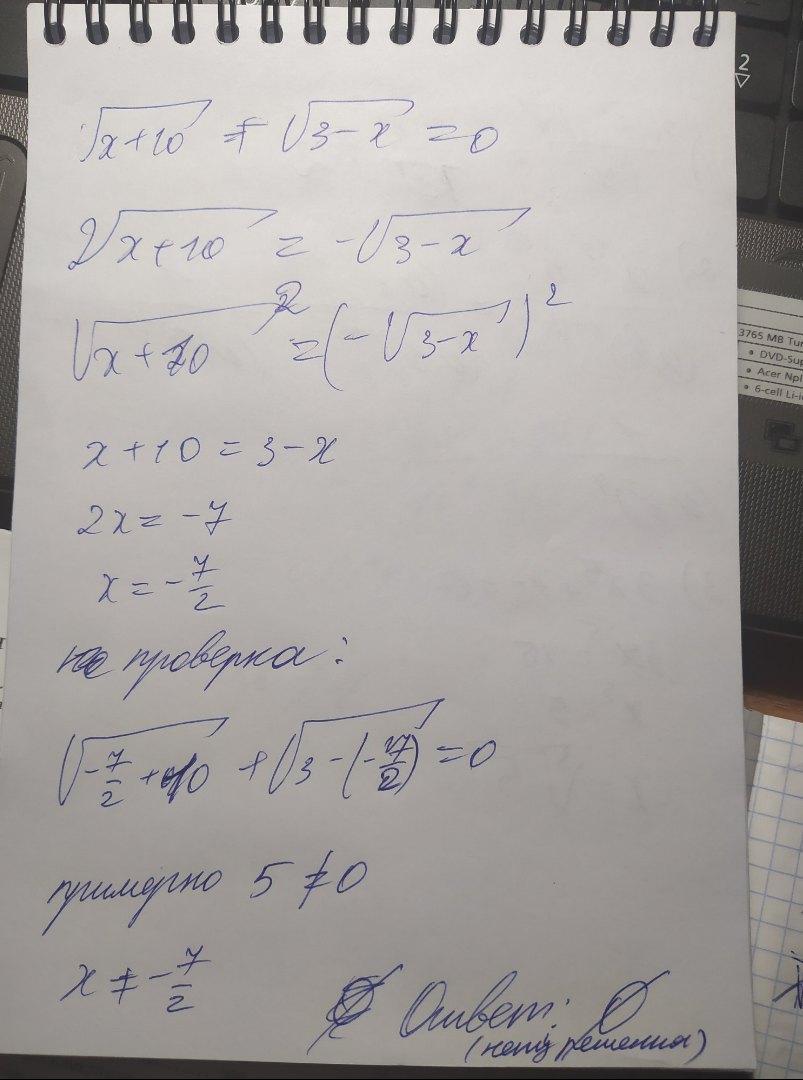 √x+10 + √3-x = 0
2√x+10 = -√3-x
√x+10² = (-√3-x)²
x+10 = 3-x
2x = -7
x = -7/2
проверка:
√-7/2+10 + √3-(-7/2) = 0
примерно 5 ≠ 0
x ≠ -7/2
Ответ: ∅
(нет решения)
2
3765 MB Tur
• DVD-Sup
• Acer Npl
• 6-cell Li-i